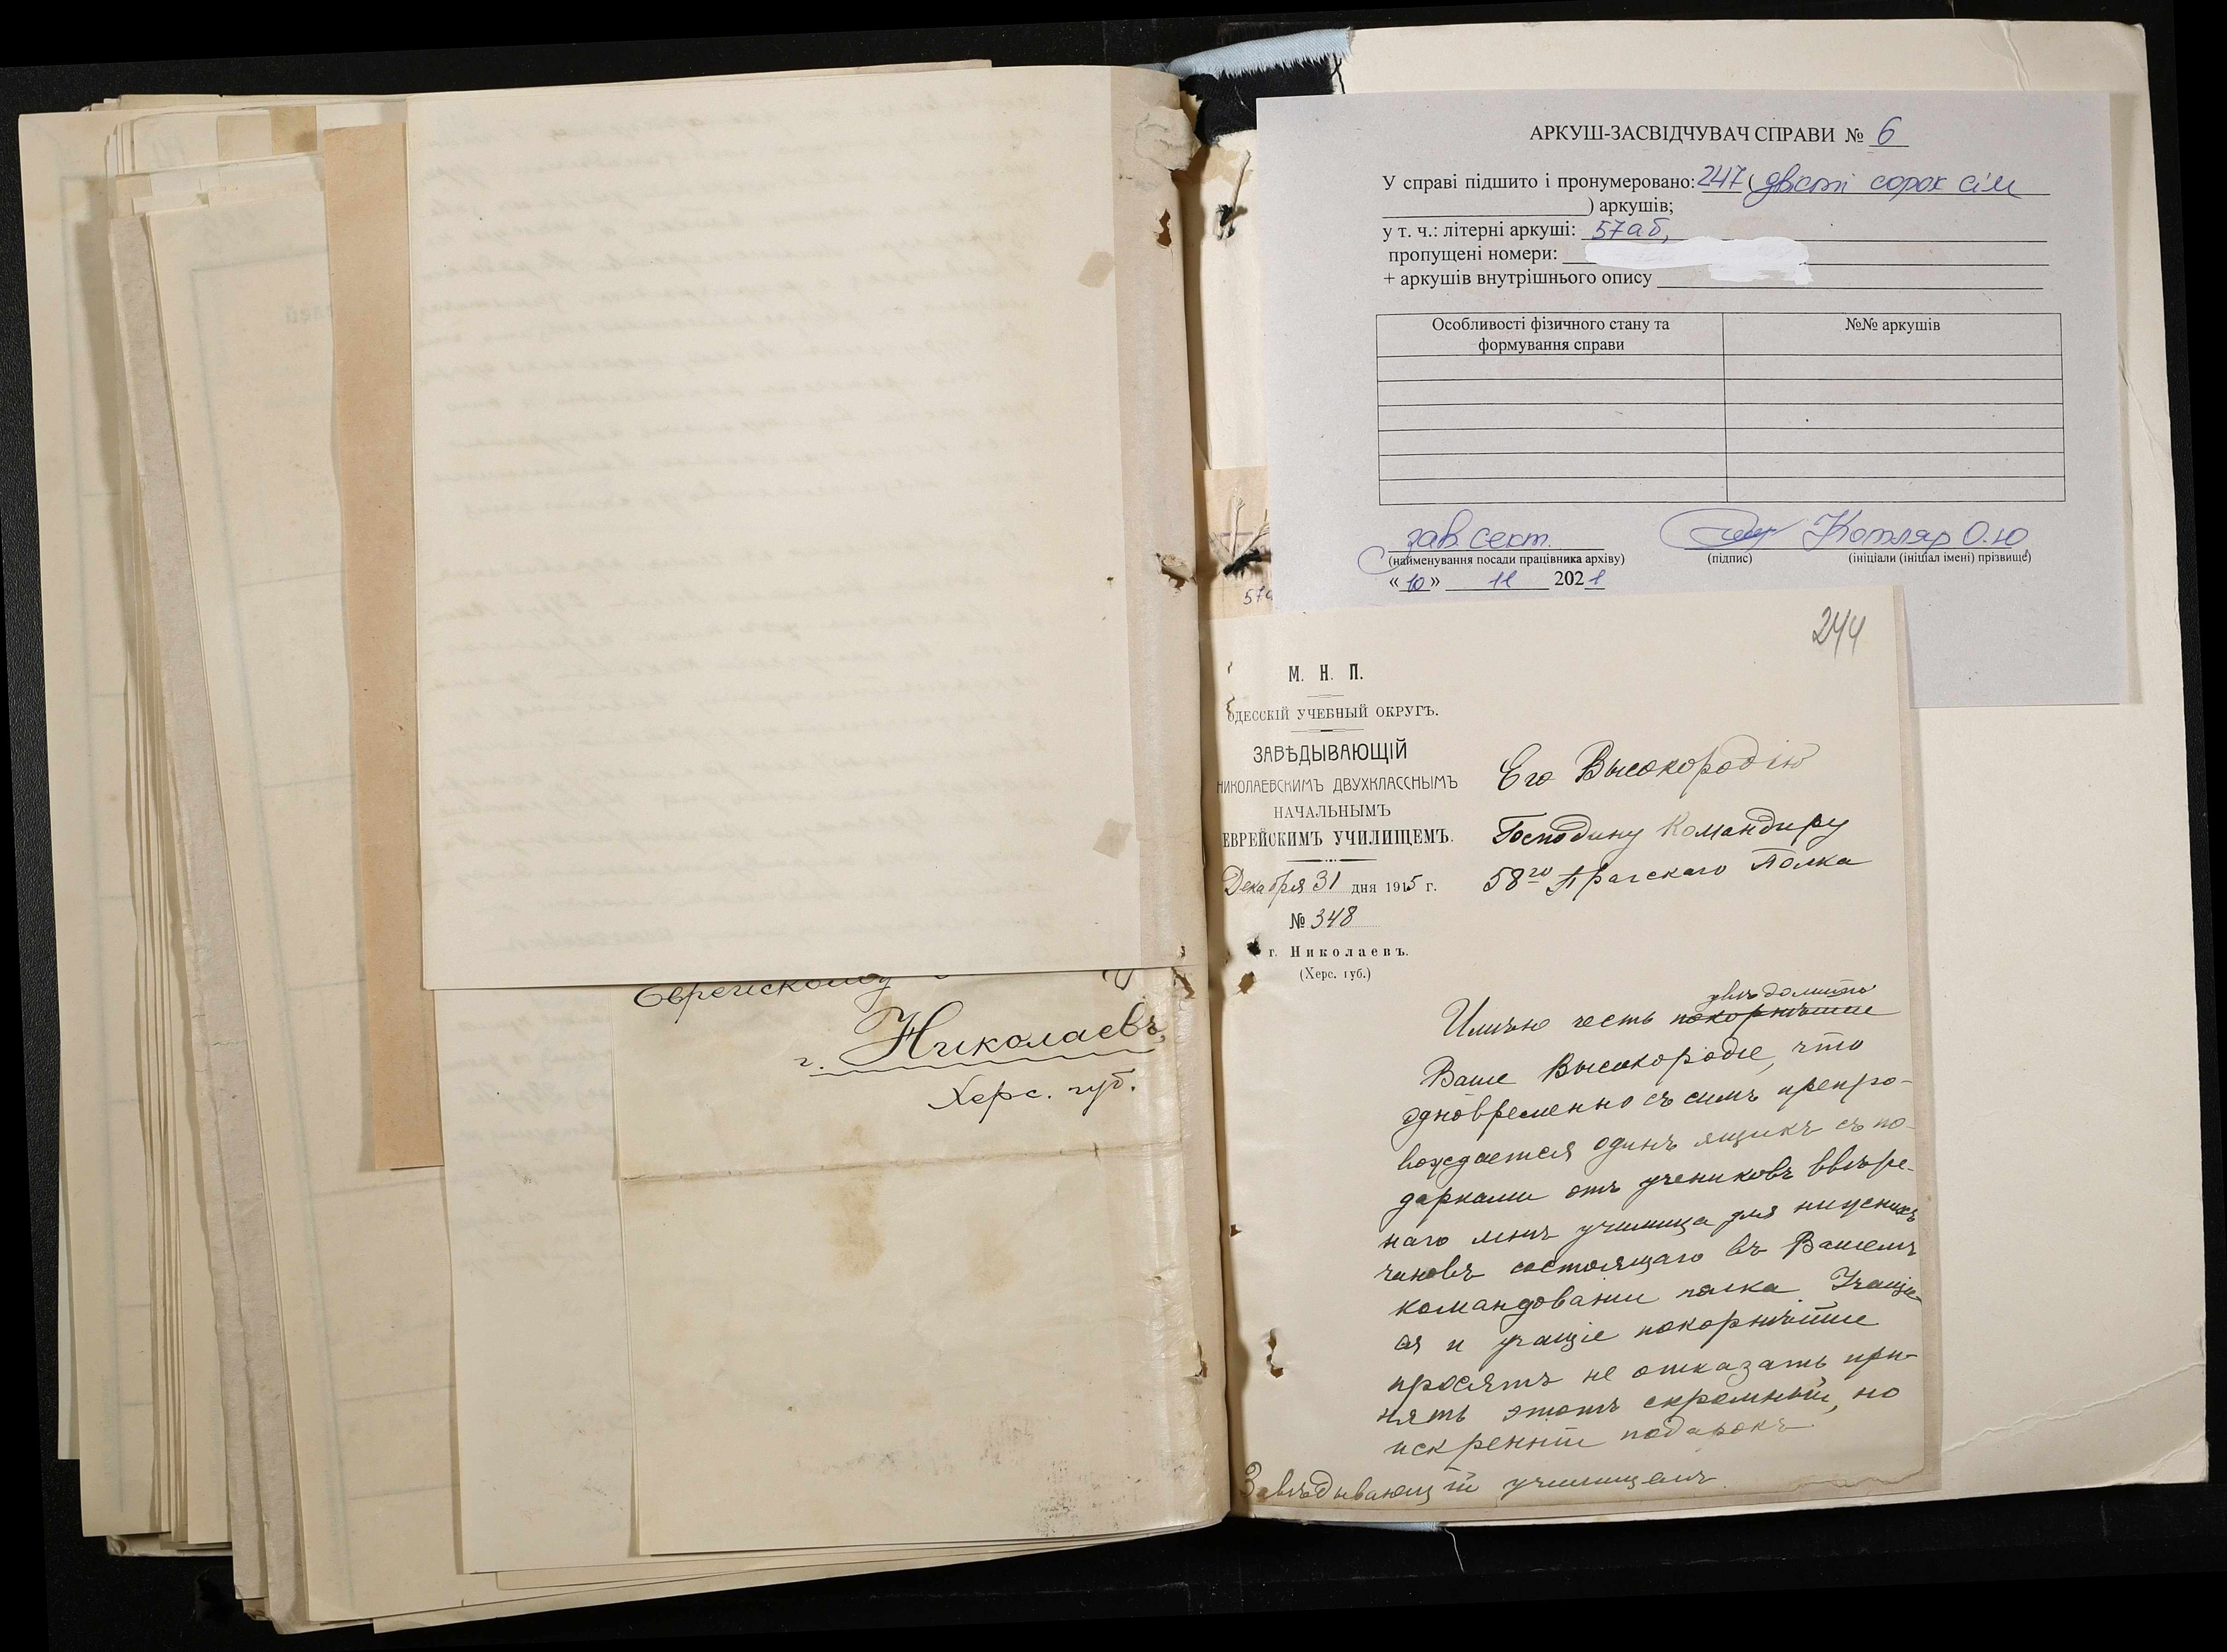 Еврейскому
г. Николаевъ,
Херс. губ.
АРКУШ-ЗАСВІДЧУВАЧ СПРАВИ № 6
У справі підшито і пронумеровано: 247 ( двісті сорок сім
) аркушів;
у т. ч.: літерні аркуші: 57а б,
пропущені номери:
+ аркушів внутрішнього опису
Особливості фізичного стану та
формування справи
№№ аркушів
зав. сект.
Котляр О.Ю
(найменування посади працівника архіву)
(підпис)
(ініціали (ініціал імені) прізвище)
« 10 » 11 2021
57а
244
М. Н. П.
ОДЕССКІЙ УЧЕБНЫЙ ОКРУГЪ.
ЗАВѢДЫВАЮЩІЙ
НИКОЛАЕВСКИМЪ ДВУХКЛАССНЫМЪ
НАЧАЛЬНЫМЪ
ЕВРЕЙСКИМЪ УЧИЛИЩЕМЪ.
Декабря 31 дня 1915 г.
№ 348
г. Николаевъ.
(Херс. губ.)
Его Высокородію
Господину Командиру
58го Прагскаго Полка
увѣдомить
Имѣю честь покорнѣйше
Ваше Высокородіе, что
одновременно съ симъ препро-
вождается одинъ ящикъ съ по-
дарками отъ учениковъ ввѣре-
наго мнѣ училища для нижнихъ
чиновъ состоящаго въ Вашемъ
командованіи полка Учащіе-
ся и учащіе покорнѣйше
просятъ не отказать при-
нять этотъ скромный, но
искренній подарокъ.
Завѣдывающій училищемъ